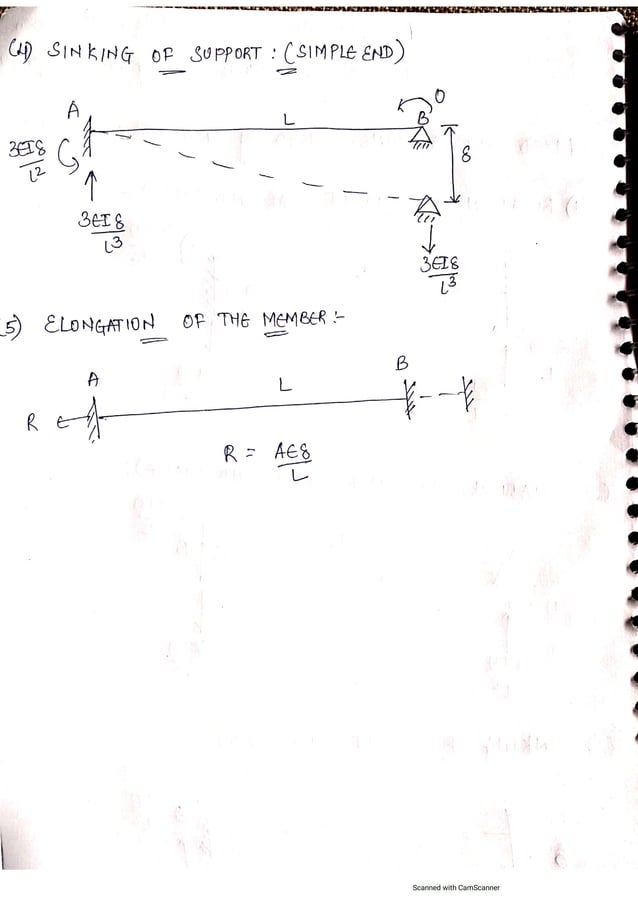 (4) SINKING OF SUPPORT : (SIMPLE END)
A
L
B
0
3EIδ
L²
δ
3EIδ
L³
3EIδ
L³
5) ELONGATION OF THE MEMBER :-
A
L
B
R
R = AEδ
L
Scanned with CamScanner